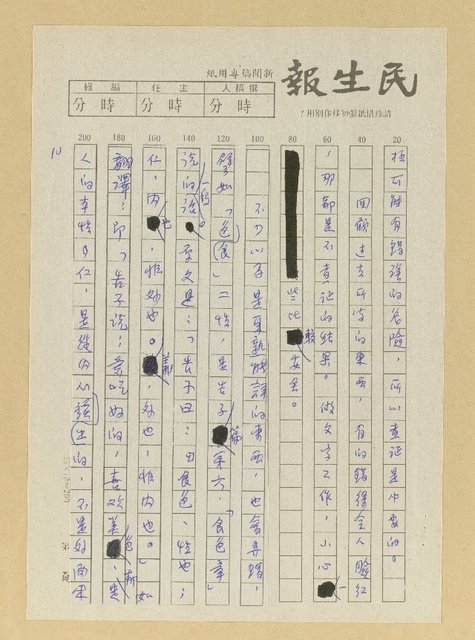 民生報
新聞稿專用紙
請珍惜紙張勿移作別用！
撰稿人 時 分
主任 時 分
編輯 時 分
20
極可能有錯誤的危險，所以查證是必要的。
40
回顧過去所寫的東西，有的錯得令人臉紅
60
，那都是不查證的結果。做文字工作，小心一
80
些，比較安全。
100
不少以為是耳熟能詳的東西，也會弄錯，
120
譬如「食色」二性，是告子篇第六，「食色章」
140
說的一段話。原文是：「告子曰：『食色，性也；
160
仁，內也，非外也。義，外也，非內也。』」如
180
翻譯，即「告子說：愛吃好的，喜歡美色，是
200
人的本性；仁，是從內心發生的，不是外面來
10
第 頁